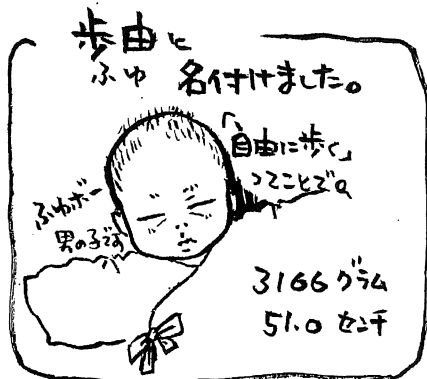 歩由に
ふゆ 名付けました。
「自由に歩く」
ってことで。
ふゆボー
男の子です
3166グラム
51.0 センチ